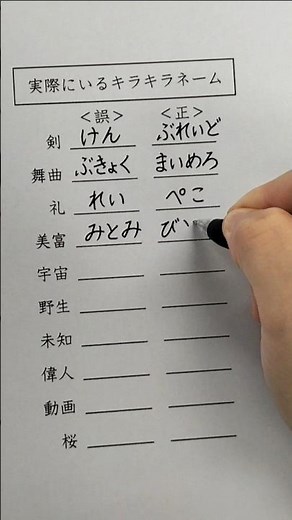 実際にいるキラキラネーム
<誤> <正>
剣 けん ぶれいど
舞曲 ぶきょく まいめろ
礼 れい ぺこ
美富 みとみ び
宇宙
野生
未知
偉人
動画
桜